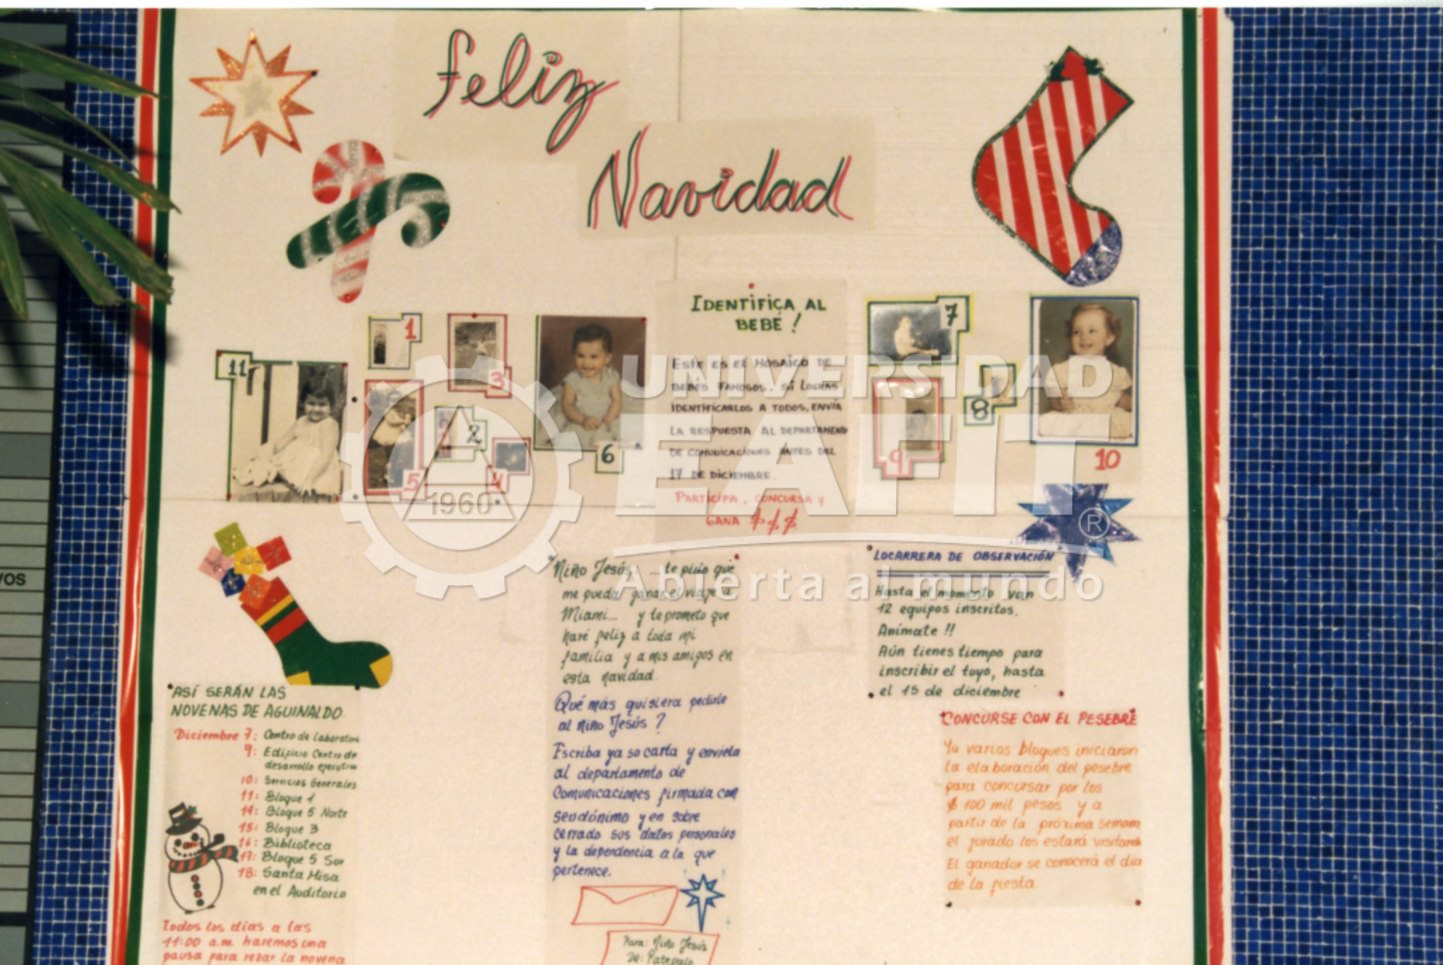 Feliz
Navidad
IDENTIFICA AL
BEBÉ!
ESTE ES EL MOSAICO DE
BEBÉS FAMOSOS. SI LOGRAS
IDENTIFICARLOS A TODOS, ENVÍA
LA RESPUESTA AL DEPARTAMENTO
DE COMUNICACIONES ANTES DEL
17 DE DICIEMBRE.
PARTICIPA, CONCURSA Y
GANA $ $ $
11
1
3
5
2
4
6
7
8
9
10
UNIVERSIDAD
EAFIT
®
Abierta al mundo
1960
VOS
ASÍ SERÁN LAS
NOVENAS DE AGUINALDO
Diciembre 7: Centro de Laboratori
9: Edificio Centro de
desarrollo ejecutivo
10: Servicios Generales
11: Bloque 1
14: Bloque 5 Norte
15: Bloque 3
16: Biblioteca
17: Bloque 5 Sur
18: Santa Misa
en el Auditorio
Todos los días a las
11:00 a.m. haremos una
pausa para rezar la novena
Niño Jesús ... te pido que
me pueda ganar el viaje a
Miami... y te prometo que
haré feliz a toda mi
familia y a mis amigos en
esta navidad.
Qué más quisiera pedirle
al Niño Jesús?
Escriba ya su carta y envíela
al departamento de
Comunicaciones firmada con
seudónimo y en sobre
cerrado sus datos personales
y la dependencia a la que
pertenece.
Para: Niño Jesús
De:
LOCARRERA DE OBSERVACIÓN
Hasta el momento van
12 equipos inscritos.
Anímate !!
Aún tienes tiempo para
inscribir el tuyo, hasta
el 15 de diciembre
CONCURSE CON EL PESEBRE
Ya varios bloques iniciaron
la elaboración del pesebre
para concursar por los
$ 100 mil pesos y a
partir de la próxima semana
el jurado los estará visitando
El ganador se conocerá el día
de la fiesta